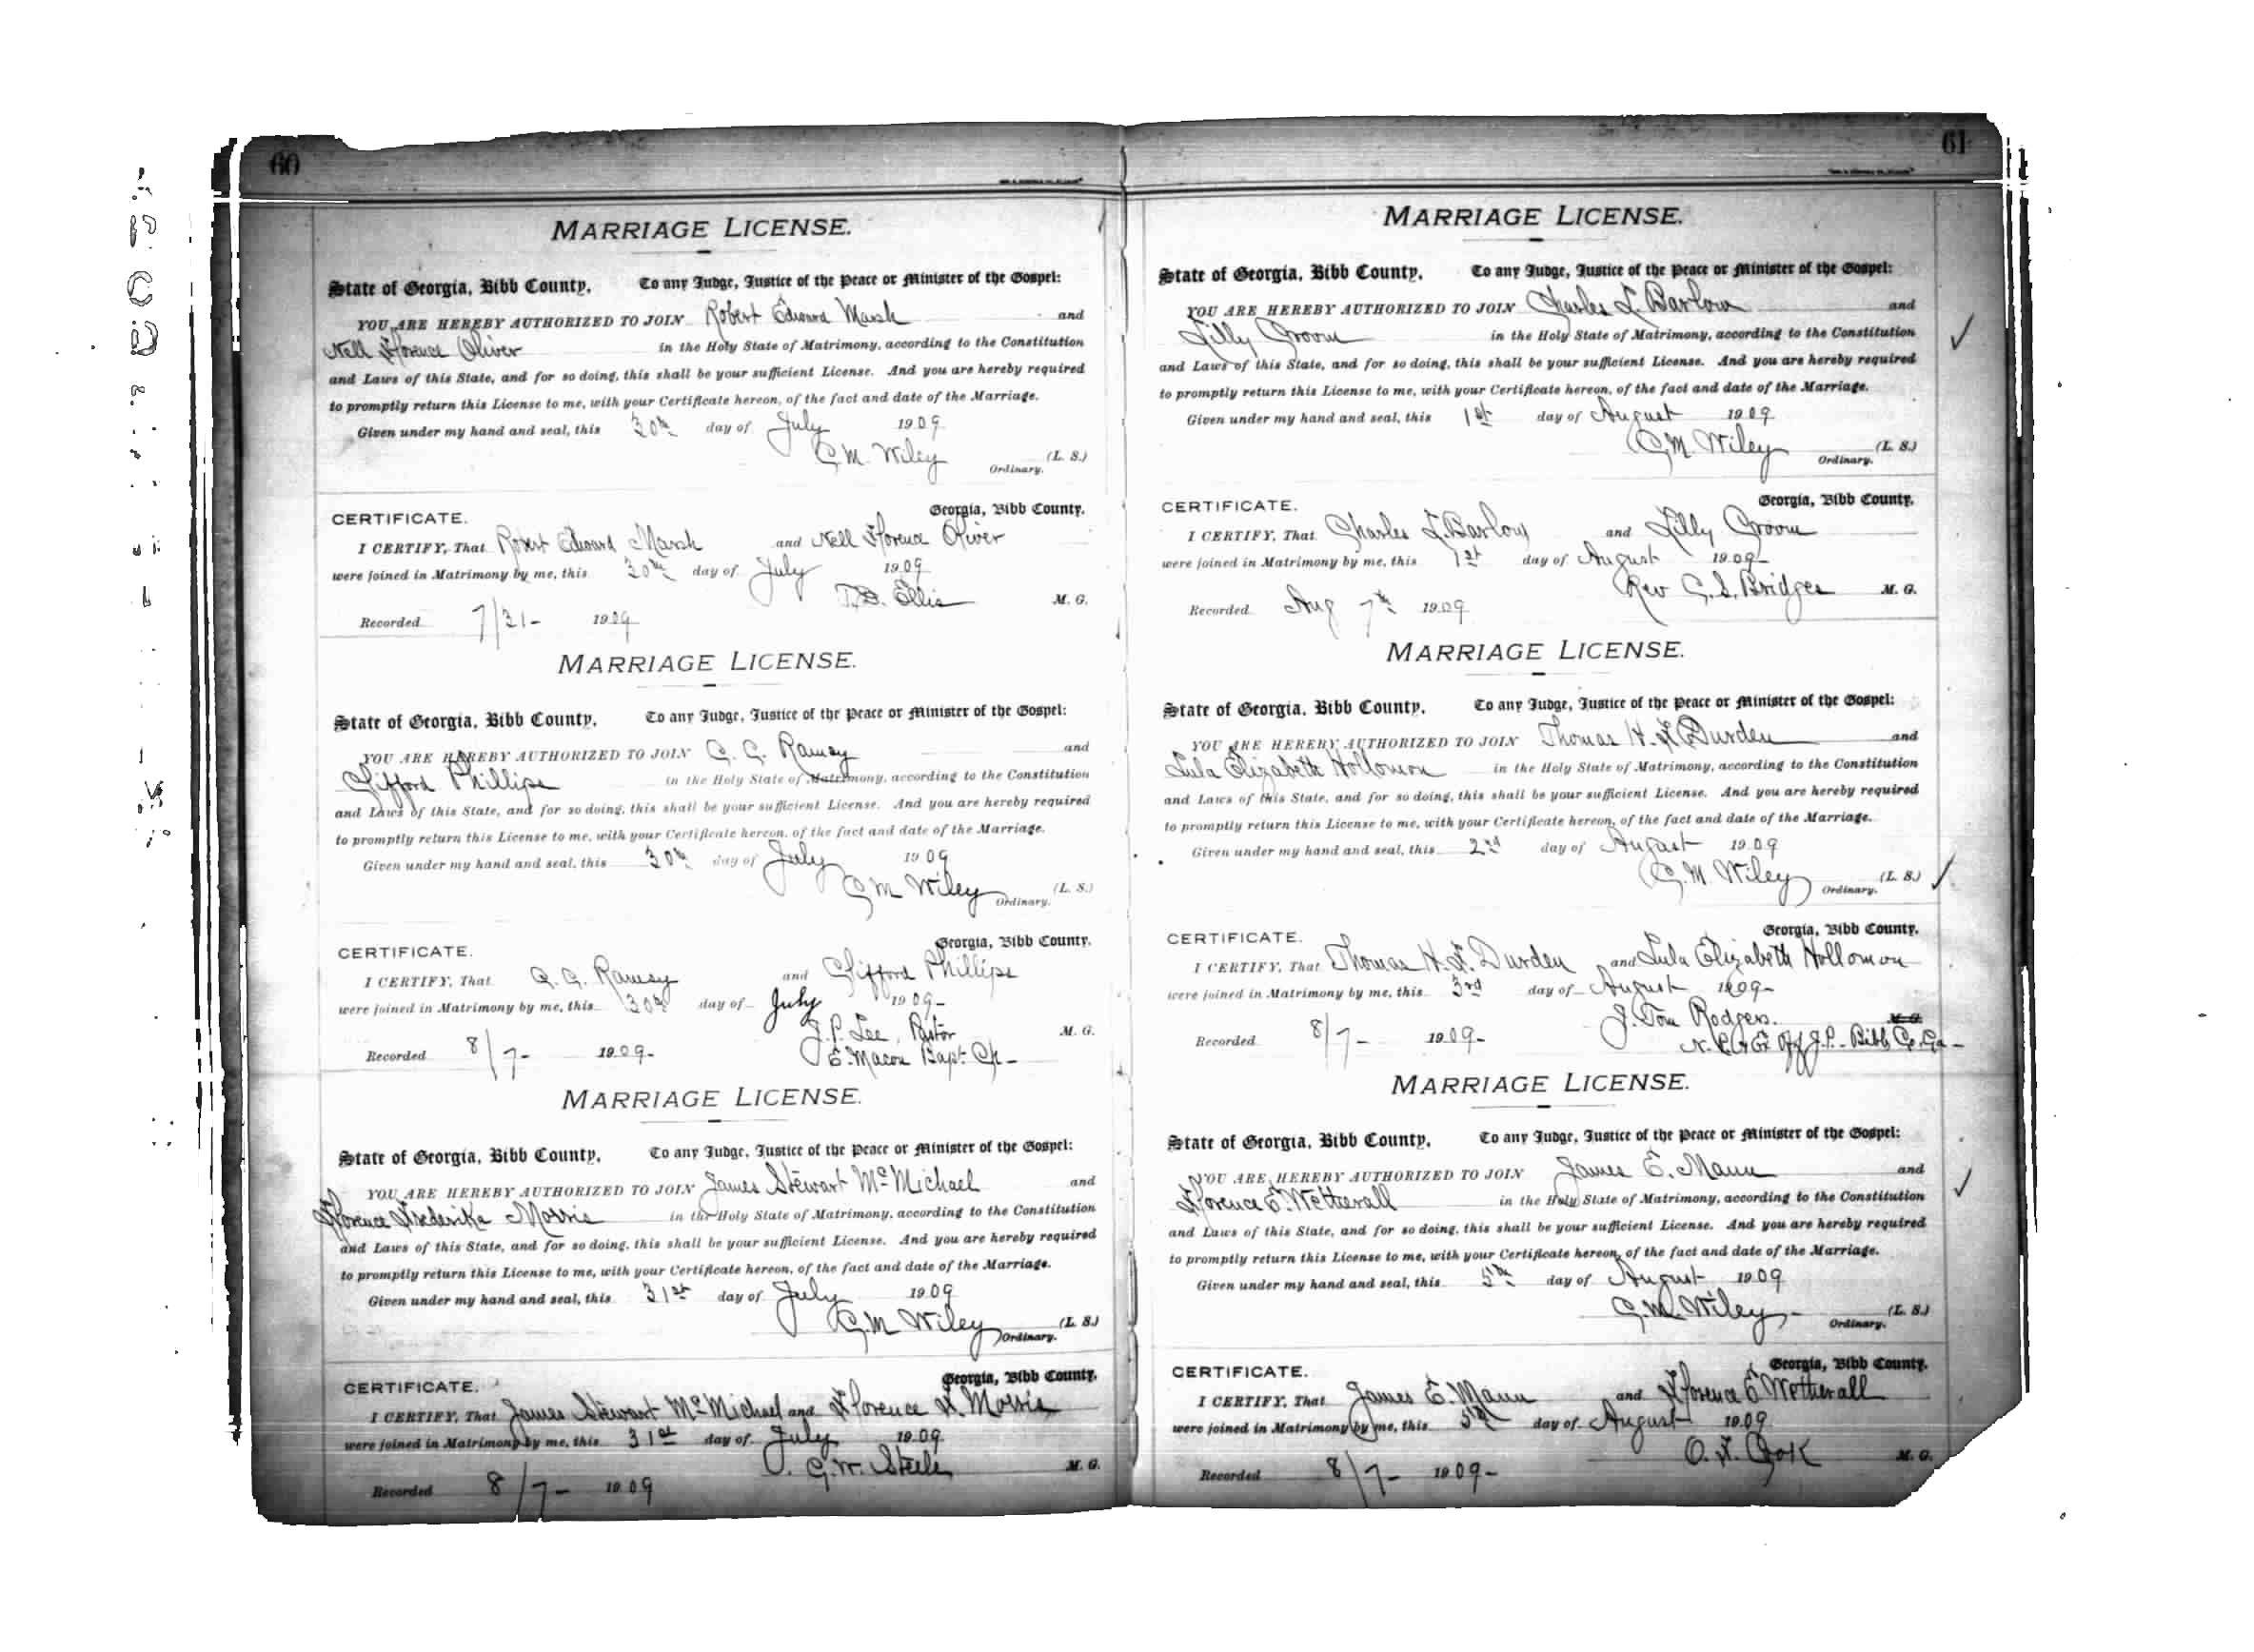 60
MARRIAGE LICENSE.
State of Georgia, Bibb County, To any Judge, Justice of the Peace or Minister of the Gospel:
YOU ARE HEREBY AUTHORIZED TO JOIN Robert Edward Marsh and
Nell Florence Oliver in the Holy State of Matrimony, according to the Constitution
and Laws of this State, and for so doing, this shall be your sufficient License. And you are hereby required
to promptly return this License to me, with your Certificate hereon, of the fact and date of the Marriage.
Given under my hand and seal, this 30th day of July 1909
C. M. Wiley (L. S.)
Ordinary.
CERTIFICATE. Georgia, Bibb County.
I CERTIFY, That Robert Edward Marsh and Nell Florence Oliver
were joined in Matrimony by me, this 30th day of July 1909
T. D. Ellis M. G.
Recorded 7/31- 1909
MARRIAGE LICENSE.
State of Georgia, Bibb County, To any Judge, Justice of the Peace or Minister of the Gospel:
YOU ARE HEREBY AUTHORIZED TO JOIN C. C. Ramsy and
Clifford Phillips in the Holy State of Matrimony, according to the Constitution
and Laws of this State, and for so doing, this shall be your sufficient License. And you are hereby required
to promptly return this License to me, with your Certificate hereon, of the fact and date of the Marriage.
Given under my hand and seal, this 30th day of July 1909
C. M Wiley (L. S.)
Ordinary.
CERTIFICATE. Georgia, Bibb County.
I CERTIFY, That Ramsy and Clifford Phillips
were joined in Matrimony by me, this 30th day of July 1909-
J. P. Lee, Pastor M. G.
E. Macon Bapt. Ch-
Recorded 8/7- 1909-
MARRIAGE LICENSE.
State of Georgia, Bibb County, To any Judge, Justice of the Peace or Minister of the Gospel:
YOU ARE HEREBY AUTHORIZED TO JOIN James Stewart McMichael and
Florence Frederika Morris in the Holy State of Matrimony, according to the Constitution
and Laws of this State, and for so doing, this shall be your sufficient License. And you are hereby required
to promptly return this License to me, with your Certificate hereon, of the fact and date of the Marriage.
Given under my hand and seal, this 31st day of July 1909
C. M Wiley (L. S.)
Ordinary.
CERTIFICATE. Georgia, Bibb County.
I CERTIFY, That James Stewart McMichael and Florence F. Morris
were joined in Matrimony by me, this 31st day of July 1909
G. W. Steele M. G.
Recorded 8/7- 1909
61
MARRIAGE LICENSE.
State of Georgia, Bibb County, To any Judge, Justice of the Peace or Minister of the Gospel:
YOU ARE HEREBY AUTHORIZED TO JOIN Charles L. Barlow and
Lilly Groom in the Holy State of Matrimony, according to the Constitution
and Laws of this State, and for so doing, this shall be your sufficient License. And you are hereby required
to promptly return this License to me, with your Certificate hereon, of the fact and date of the Marriage.
Given under my hand and seal, this 1st day of August 1909
C. M. Wiley (L. S.)
Ordinary.
CERTIFICATE. Georgia, Bibb County.
I CERTIFY, That Charles L. Barlow and Lilly Groom
were joined in Matrimony by me, this 1st day of August 1909-
Rev C. S. Bridges M. G.
Recorded Aug 7th 1909
MARRIAGE LICENSE.
State of Georgia, Bibb County, To any Judge, Justice of the Peace or Minister of the Gospel:
YOU ARE HEREBY AUTHORIZED TO JOIN Thomas H. F. Durden and
Lula Elizabeth Hollomon in the Holy State of Matrimony, according to the Constitution
and Laws of this State, and for so doing, this shall be your sufficient License. And you are hereby required
to promptly return this License to me, with your Certificate hereon, of the fact and date of the Marriage.
Given under my hand and seal, this 2nd day of August 1909
C. M. Wiley (L. S.)
Ordinary.
CERTIFICATE. Georgia, Bibb County.
I CERTIFY, That Thomas H. F. Durden and Lula Elizabeth Hollomon
were joined in Matrimony by me, this 3rd day of August 1909-
J. Tom Rodgers. M. G.
N. P. & Ex Off J. P.- Bibb Co. Ga-
Recorded 8/7- 1909-
MARRIAGE LICENSE.
State of Georgia, Bibb County, To any Judge, Justice of the Peace or Minister of the Gospel:
YOU ARE HEREBY AUTHORIZED TO JOIN James E. Mann and
Florence E. Wetherall in the Holy State of Matrimony, according to the Constitution
and Laws of this State, and for so doing, this shall be your sufficient License. And you are hereby required
to promptly return this License to me, with your Certificate hereon, of the fact and date of the Marriage.
Given under my hand and seal, this 5th day of August 1909
C. M. Wiley- (L. S.)
Ordinary.
CERTIFICATE. Georgia, Bibb County.
I CERTIFY, That James E. Mann and Florence E Wetherall
were joined in Matrimony by me, this 5th day of August 1909
O. F. Cook M. G.
Recorded 8/7- 1909-